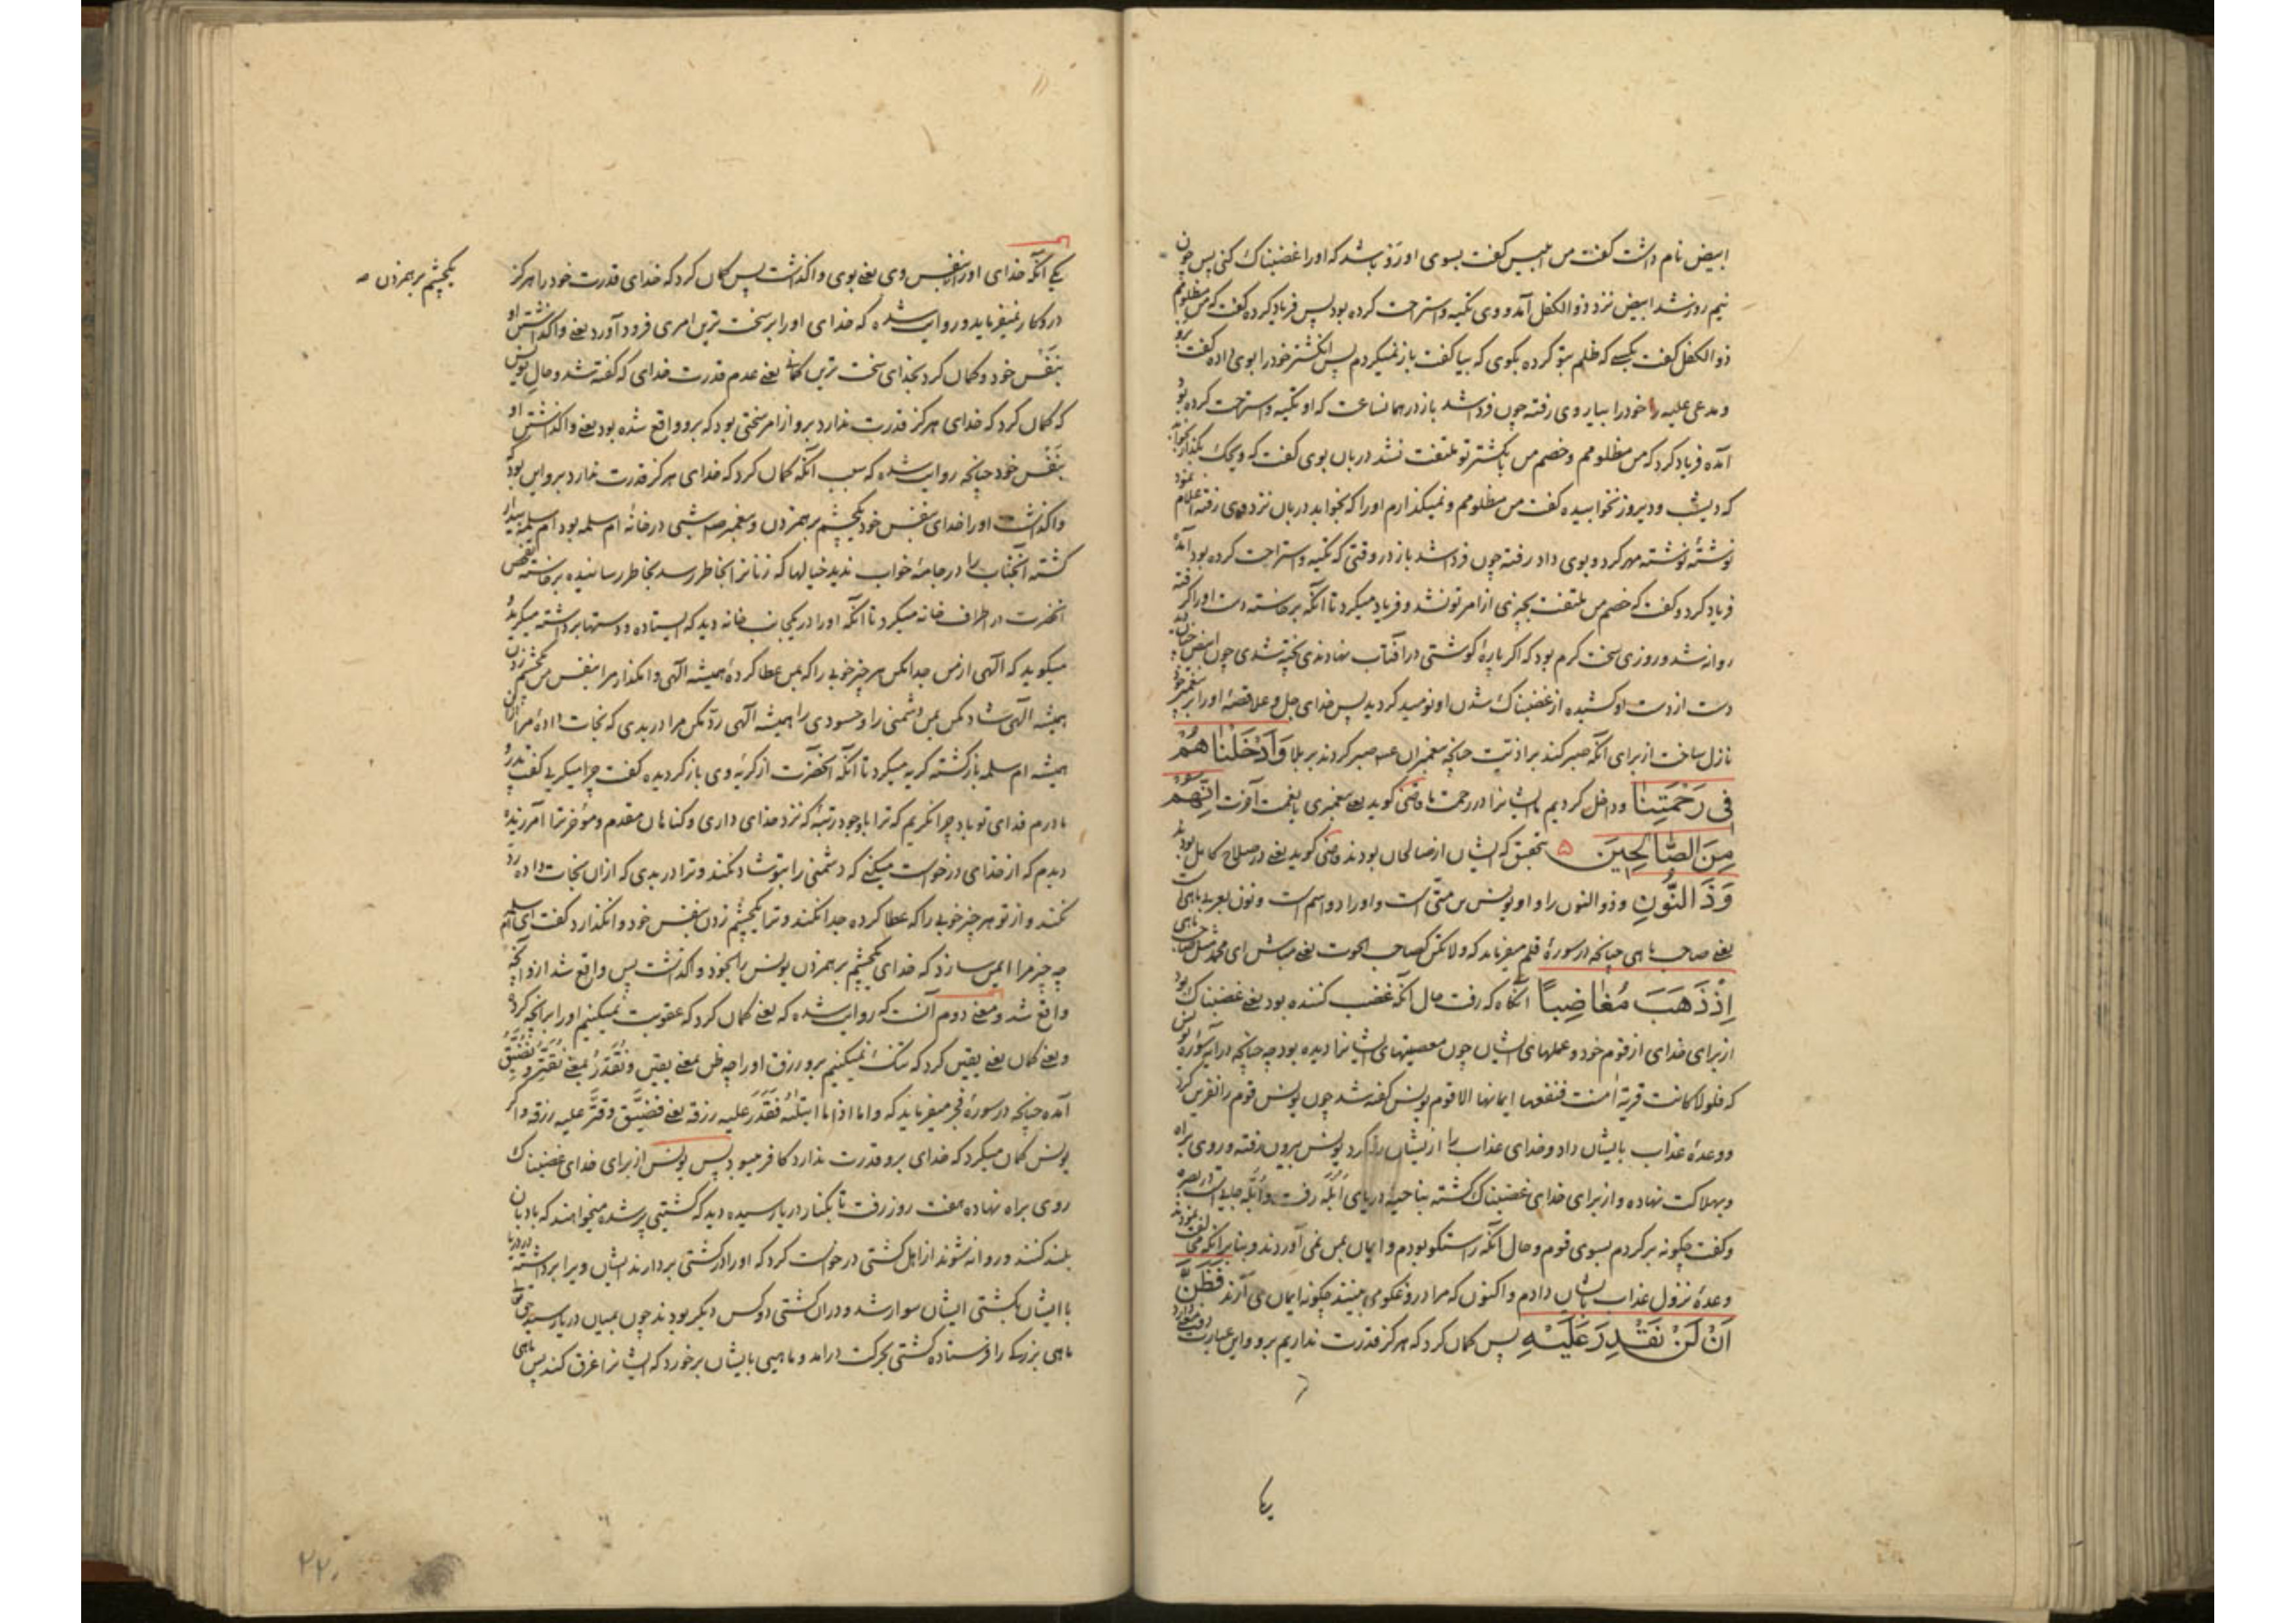 ابیض نام داشت گفت من ابلیس گفت بسوی او رَوْ باشد که او را غضبناک کنی پس چون
نیم روز شد ابیض نزد ذوالکفل آمد و وی تکیه و استراحت کرده بود پس فریاد کرده گفت که من مظلومم
ذوالکفل گفت بکسی که ظلم بتو کرده بگوی که بیا گفت باز نمیگردم پس انگشتر خود را بوی داده گفت برو
و مدعی علیه را خود را بیار وی رفته چون فردا شد باز در همانساعت که او تکیه و استراحت کرده بود
آمده فریاد کرد که من مظلومم و خصم من بانگشتر تو ملتفت نشد دربان بوی گفت که ویحک بگذار بخوابد
که دیشب و دیروز نخوابیده گفت من مظلومم و نمیگذارم او را که بخوابد دربان نزد وی رفته اعلام نمود
نوشتهٔ نوشته مهر کرد و بوی داد رفته چون فردا شد باز در وقتی که تکیه و استراحت کرده بود آمده
فریاد کرد و گفت که خصم من ملتفت بچیزی از امر تو نشد و فریاد میکرد تا آنکه برخاسته دست او را گرفته
روانه شد و روزی سخت گرم بود که اگر پارهٔ گوشتی در آفتاب نهادندی پخته شدی چون ابیض چنان دید
دست از دست او کشیده از غضبناک شدن او نومید گردید پس خدای جل و علا قصهٔ او را بر پیغمبر خود
نازل ساخت از برای آنکه صبر کند بر اذیت چنانچه پیغمبران ع صبر کردند بر بلا وَاَدْخَلْنَا هُمْ
فِی رَحْمَتِنَا و داخل کردیم ما ایشانرا در رحمت ما قاضی گوید یعنی پیغمبری یا نعمت آخرت اِنَّهُمْ
مِنَ الصَّالِحِینَ ۵ بتحقیق که ایشان از صالحان بودند قاضی گوید یعنی در صلاح کامل بودند
وَذَا النُّونِ و ذوالنون را و او یونس بن متّی است و او را دو اسم است و نون بعربی ماهی است
یعنی صاحب ماهی چنانچه در سورهٔ قلم میفرماید که ولا تکن کصاحب الحوت یعنی مباش ای محمد مثل صاحب ماهی
اِذْ ذَهَبَ مُغَاضِبًا آنگاه که رفت حال آنکه غضب کننده بود یعنی غضبناک بود
از برای خدای از قوم خود و عملهای ایشان چون معصیتهای ایشانرا دیده بود چه چنانچه در آیه سورهٔ یونس
که فلولا کانت قریة اٰمنت فنفعها ایمانها الا قوم یونس گفته شد چون یونس قوم را نفرین کرد
و وعدهٔ عذاب بایشان داد و خدای عذاب را از ایشان رد کرد یونس بیرون رفته و روی براه
و بهلاکت نهاده و از برای خدای غضبناک گشته بناحیهٔ دریای اُبُلّه رفت و اُبُلّه جایی است در بصره
و گفت چگونه برگردم بسوی قوم و حال آنکه راستگو بودم و ایمان بمن نمی آوردند و بنا بر آنکه من
وعدهٔ نزول عذاب بایشان دادم و اکنون که مرا دروغگو می بینند چگونه ایمان می آرند فَظَنَّ
اَنْ لَنْ نَقْدِرَ عَلَیْهِ پس گمان کرد که هرگز قدرت نداریم برو و این عبارت
یکی آنکه خدای او را بنفس وی یعنی بوی واگذاشت پس گمان کرد که خدای قدرت خود را هرگز
در وی کار نمیفرماید و روایت شده که خدای او را بر سخت ترین امری فرود آورد یعنی واگذاشتن او
بنَفْس خود و گمان کرد بخدای سخت ترین گمانی یعنی عدم قدرت خدای که گفته شد و حال یونس
که گمان کرد که خدای هرگز قدرت ندارد برو از امر سختی بود که برو واقع شده بود یعنی واگذاشتن او
بنَفْس خود چنانچه روایت شده که سبب آنکه گمان کرد که خدای هرگز قدرت ندارد برو این بود که
واگذاشت او را خدای بنفس خود یکچشم بر همزدن و پیغمبر ص شبی در خانهٔ ام سلمه بود ام سلمه بیدار
گشته آنجناب را در جامهٔ خواب ندید خیالها که زنانرا بخاطر رسد بخاطر رسانیده برخاسته تفحص
آنحضرت در اطراف خانه میکرد تا آنکه او را در یکجانب خانه دید که ایستاده و دستها برداشته میگرید و
میگوید که الٰهی از من جدا مکن هر چیز خوبی را که بمن عطا کردهٔ همیشه الٰهی وامگذار مرا بنفس من یکچشم زدن
همیشه الٰهی شاد مکن بمن دشمنی را و حسودی را همیشه الٰهی ردّ مکن مرا در بدی که نجات دادهٔ مرا از آن
همیشه ام سلمه بازگشته گریه میکرد تا آنکه آنحضرت از گریهٔ وی بازگردیده گفت چرا میگریی گفت پدر و
مادرم فدای تو باد چرا نگریم که ترا باوجود رتبهٔ که نزد خدای داری و گناهان مقدم و مؤخر ترا آمرزیده
دیدم که از خدای درخواست میکنی که دشمنی را بتو شاد نکند و ترا در بدی که از آن نجات داده رد
نکند و از تو هر چیز خوبی را که عطا کرده جدا نکند و ترا یکچشم زدن بنفس خود وانگذارد گفت ای ام سلمه
چه چیز مرا ایمن سازد که خدای یکچشم بر همزدن یونس را بخود واگذاشت پس واقع شد ازو آنچه
واقع شد و معنی دوم آنست که روایت شده که یعنی گمان کرد که عقوبت نمیکنیم او را بر آنچه کرد
و یعنی گمان یعنی یقین کرد که تنگ نمیکنیم برو رزق او را چه ظن بمعنی یقین و نُقَدِّرُ بمعنی نُقَتِّرُ و نُضَیِّقُ
آمده چنانچه در سورهٔ فجر میفرماید که و اما اذا ما ابتلٰهُ فقَدَرَ علیه رزقه یعنی فضیَّق و قتَّر علیه رزقه و اگر
یونس گمان میکرد که خدای برو قدرت ندارد کافر میبود پس یونس از برای خدای غضبناک
روی براه نهاده هفت روز رفت تا بکنار دریا رسیده دید که کشتیی پر شده میخواهند که بادبان
بلند کنند و روانه شوند از اهل کشتی درخواست کرد که او را در کشتی بردارند ایشان ویرا برداشته
با ایشان بکشتی ایشان سوار شد و در آن کشتی دو کس دیگر بودند چون بمیان دریا رسید
ماهی بزرگی را فرستاده کشتی بحرکت درآمد و ماهیی بایشان برخورد که ایشانرا غرق کند پس ماهی
یکچشم بر همزدن
۲۲۰